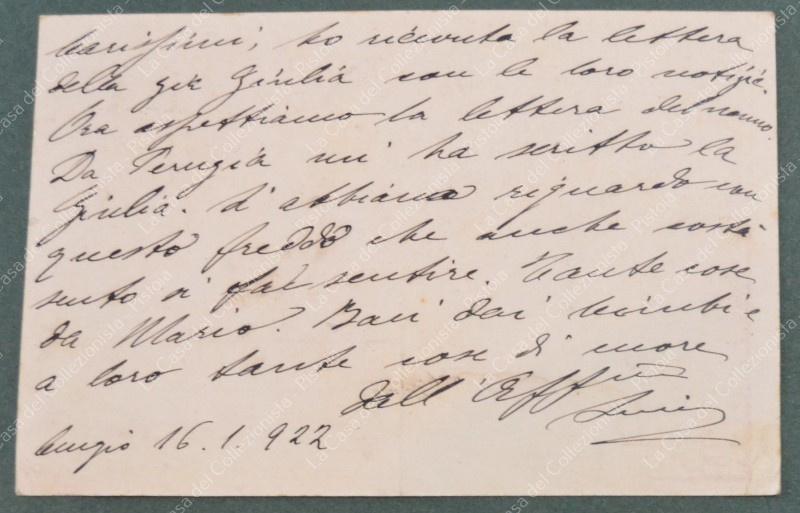 Carissimi; ho ricevuto la lettera
della zia Giulia con le loro notizie.
Ora aspettiamo la lettera del nonno.
Da Perugia mi ha scritto la
Giulia. S'abbiano riguardo con
questo freddo che anche costà
sento si fa sentire. Tante cose
da Mario. Baci dai bimbi e
a loro tante cose di cuore
dall'Aff
16.1.922
La Casa del Collezionista - Pistoia